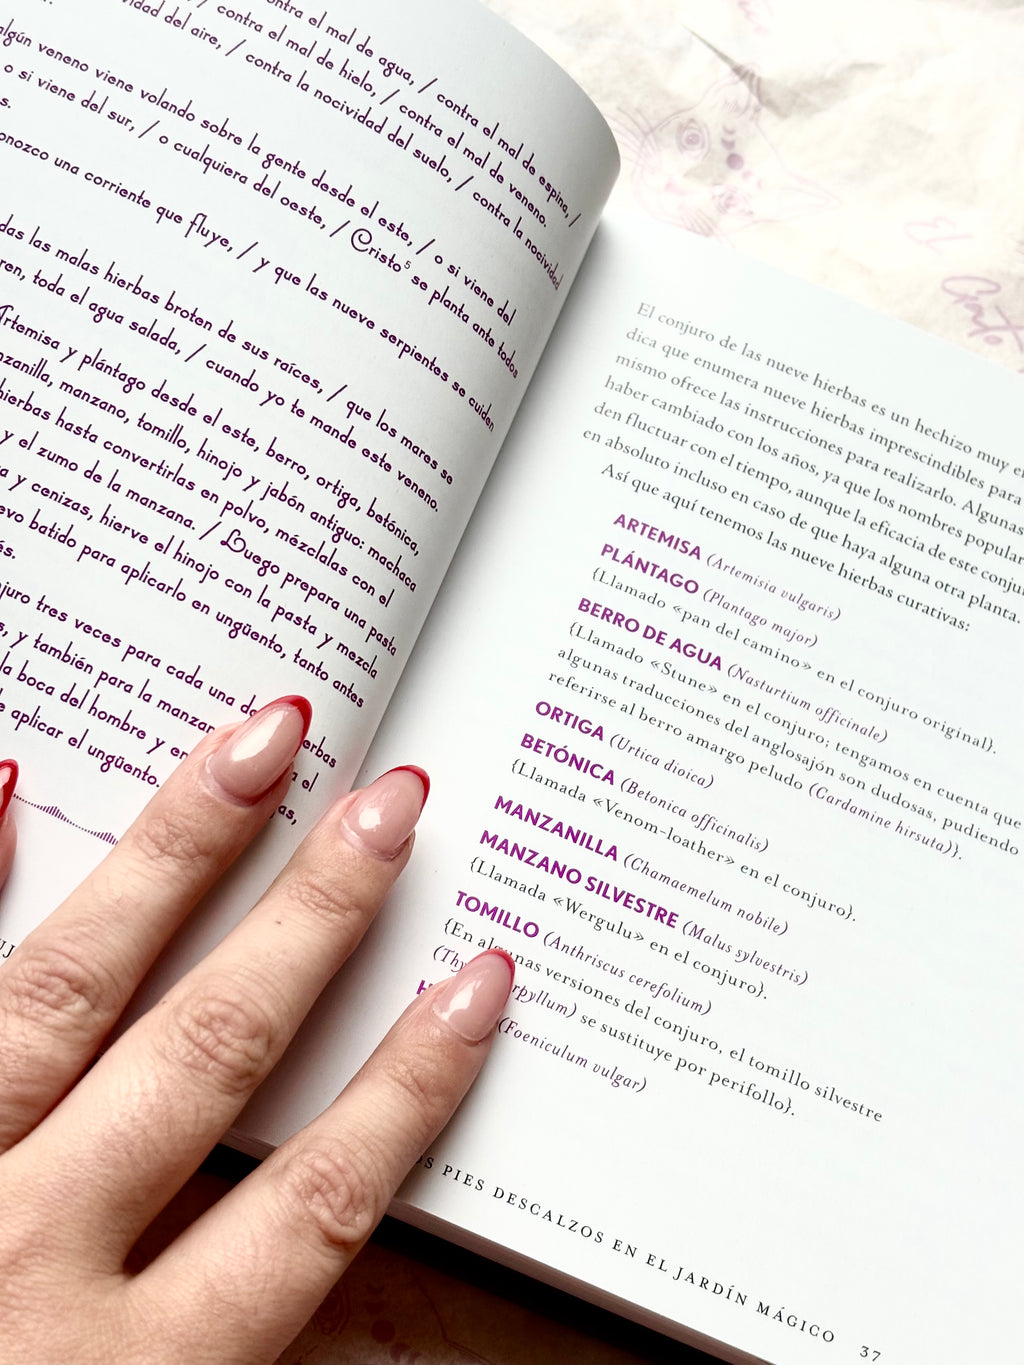 contra el mal de agua, / contra el mal de espina, /
/ contra el mal de hielo, / contra el mal de veneno.
del aire, / contra la nocividad del suelo, / contra la nocividad
algún veneno viene volando sobre la gente desde el este, / o si viene del
o si viene del sur, / o cualquiera del oeste, / Cristo⁵ se planta ante todos
una corriente que fluye, / y que las nueve serpientes se cuiden
las malas hierbas broten de sus raíces, / que los mares se
toda el agua salada, / cuando yo te mande este veneno.
Artemisa y plántago desde el este, berro, ortiga, betónica,
manzano, tomillo, hinojo y jabón antiguo: machaca
hierbas hasta convertirlas en polvo, mézclalas con el
y el zumo de la manzana. / Luego prepara una pasta
y cenizas, hierve el hinojo con la pasta y mezcla
batido para aplicarlo en ungüento, tanto antes
tres veces para cada una
y también para la
la boca del hombre y
el
aplicar el ungüento.
El conjuro de las nueve hierbas es un hechizo muy
dica que enumera nueve hierbas imprescindibles para
mismo ofrece las instrucciones para realizarlo. Algunas
haber cambiado con los años, ya que los nombres
den fluctuar con el tiempo, aunque la eficacia de este
en absoluto incluso en caso de que haya alguna otra planta.
Así que aquí tenemos las nueve hierbas curativas:
ARTEMISA (Artemisia vulgaris)
PLÁNTAGO (Plantago major)
{Llamado «pan del camino» en el conjuro original}.
BERRO DE AGUA (Nasturtium officinale)
{Llamado «Stune» en el conjuro; tengamos en cuenta que
algunas traducciones del anglosajón son dudosas, pudiendo
referirse al berro amargo peludo (Cardamine hirsuta)}.
ORTIGA (Urtica dioica)
BETÓNICA (Betonica officinalis)
{Llamada «Venom-loather» en el conjuro}.
MANZANILLA (Chamaemelum nobile)
MANZANO SILVESTRE (Malus sylvestris)
{Llamada «Wergulu» en el conjuro}.
TOMILLO (Anthriscus cerefolium)
{En algunas versiones del conjuro, el tomillo silvestre
se sustituye por perifollo}.
(Foeniculum vulgar)
PIES DESCALZOS EN EL JARDÍN MÁGICO 37
El
Gato